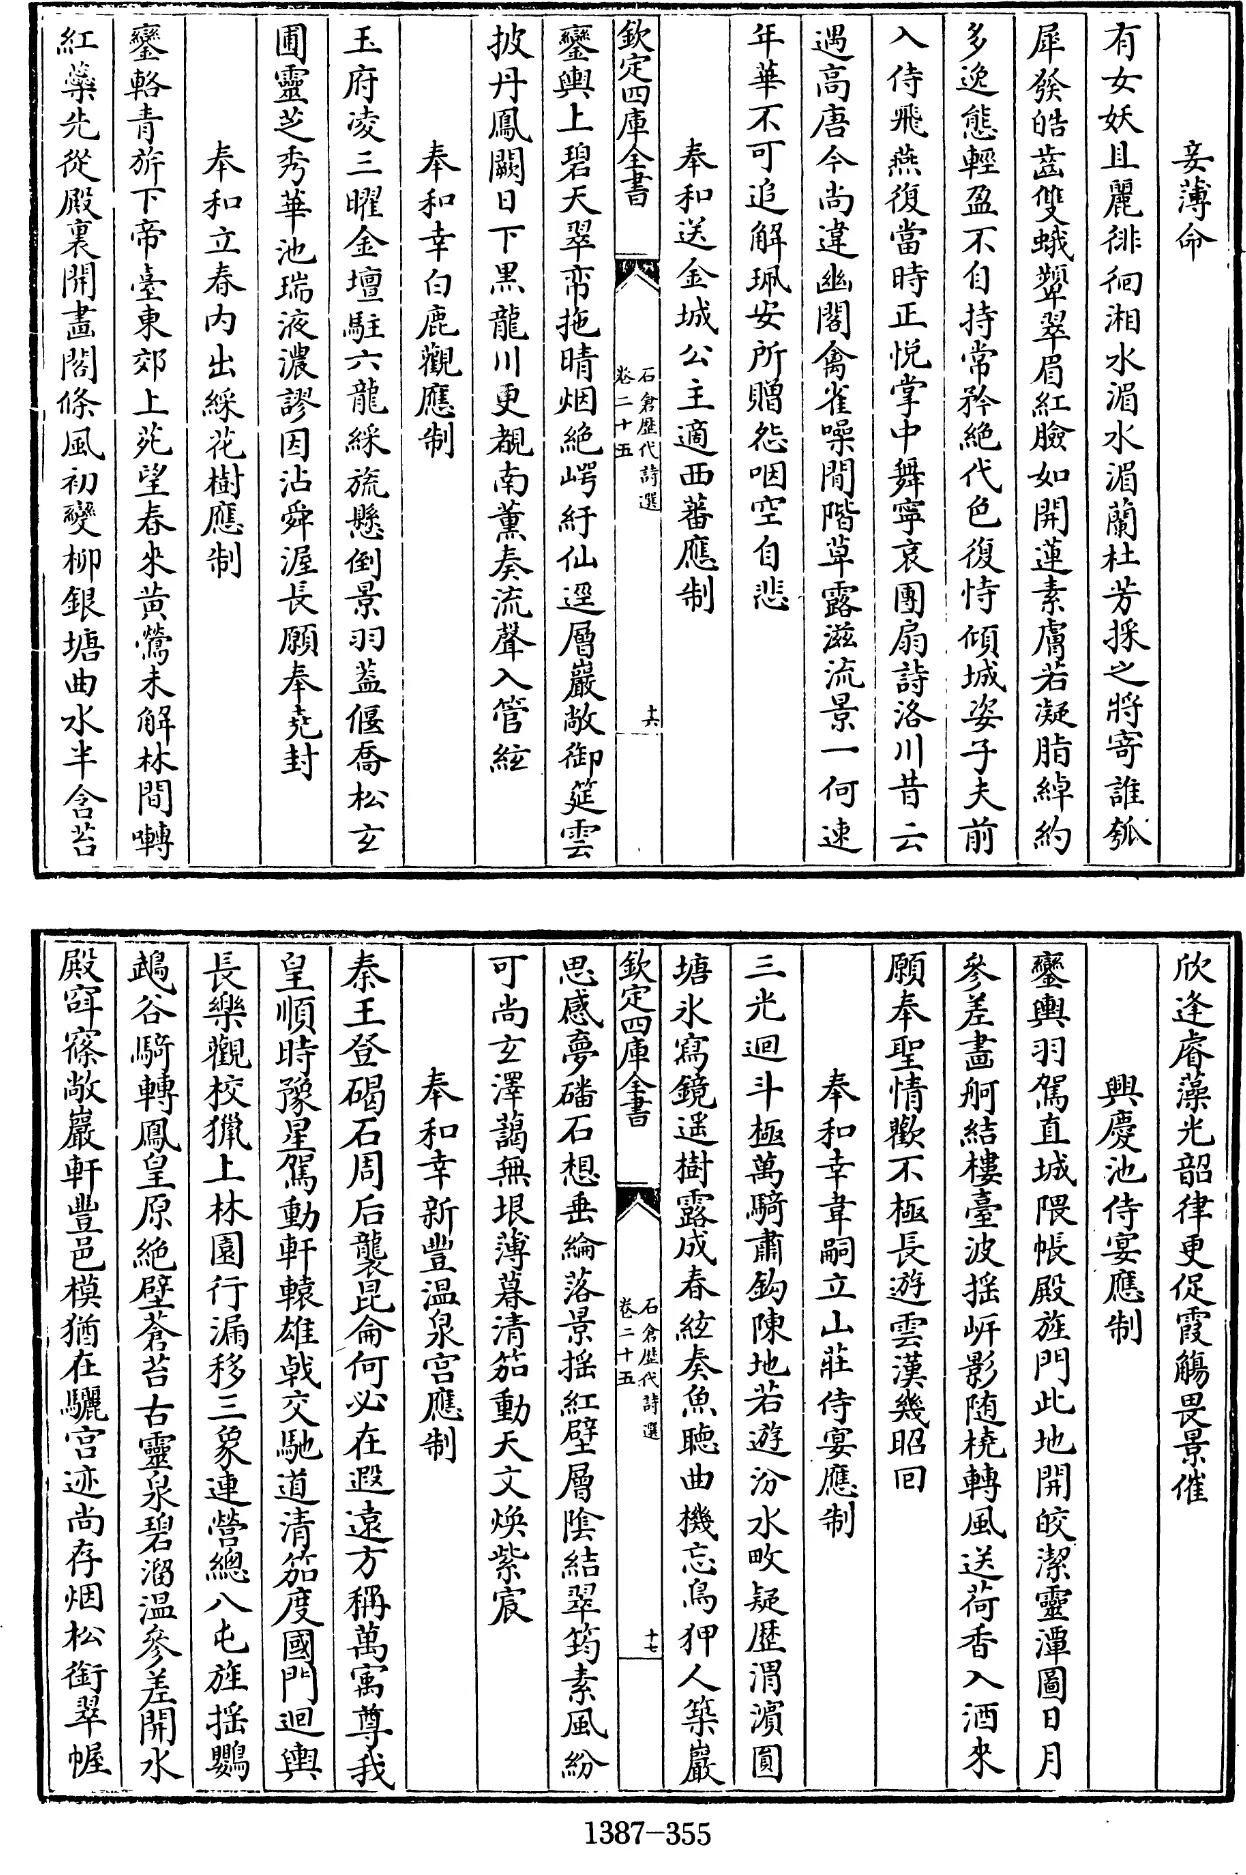 妾薄命
有女妖且麗徘徊湘水湄水湄蘭杜芳採之將寄誰瓠
犀發皓齒雙蛾顰翠眉紅臉如開蓮素膚若凝脂綽約
多逸態輕盈不自持常矜絶代色復恃傾城姿子夫前
入侍飛燕復當時正悦掌中舞寧哀團扇詩洛川昔云
遇高唐今尚違幽閣禽雀噪閒階草露滋流景一何速
年華不可追解珮安所贈怨咽空自悲
奉和送金城公主適西蕃應制
欽定四庫全書
石倉歴代詩選
卷二十五
十六
鑾輿上碧天翠帟拖晴烟絶崿紆仙逕層巖敞御筵雲
披丹鳳闕日下黒龍川更覩南薫奏流聲入管絃
奉和幸白鹿觀應制
玉府凌三曜金壇駐六龍綵旒懸倒景羽葢偃喬松玄
圃靈芝秀華池瑞液濃謬因沾舜渥長願奉堯封
奉和立春内出綵花樹應制
鑾輅青旂下帝臺東郊上苑望春來黄鶯未解林間囀
紅藥先從殿裏開畫閣條風初變柳銀塘曲水半含苔
欣逢睿藻光韶律更促霞觴畏景催
興慶池侍宴應制
鑾輿羽駕直城隈帳殿旌門此地開皎潔靈潭圖日月
參差畫舸結樓臺波揺岍影随橈轉風送荷香入酒來
願奉聖情歡不極長遊雲漢幾昭回
奉和幸韋嗣立山莊侍宴應制
三光迴斗極萬騎肅鈎陳地若遊汾水畋疑歴渭濵圓
塘氷寫鏡遥樹露成春絃奏魚聽曲機忘鳥狎人築巖
欽定四庫全書
石倉歴代詩選
卷二十五
十七
思感夢磻石想垂綸落景揺紅壁層陰結翠筠素風紛
可尚玄澤藹無垠薄暮清笳動天文煥紫宸
奉和幸新豐温泉宫應制
秦王登碣石周后襲昆侖何必在遐遠方稱萬寓尊我
皇順時豫星駕動軒轅雄戟交馳道清笳度國門迴輿
長樂觀校獵上林園行漏移三象連營總八屯旌揺鸚
鵡谷騎轉鳳皇原絶壁蒼苔古靈泉碧溜温參差開水
殿窅窱敞巖軒豐邑模猶在驪宫迹尚存烟松銜翠幄
1387-355